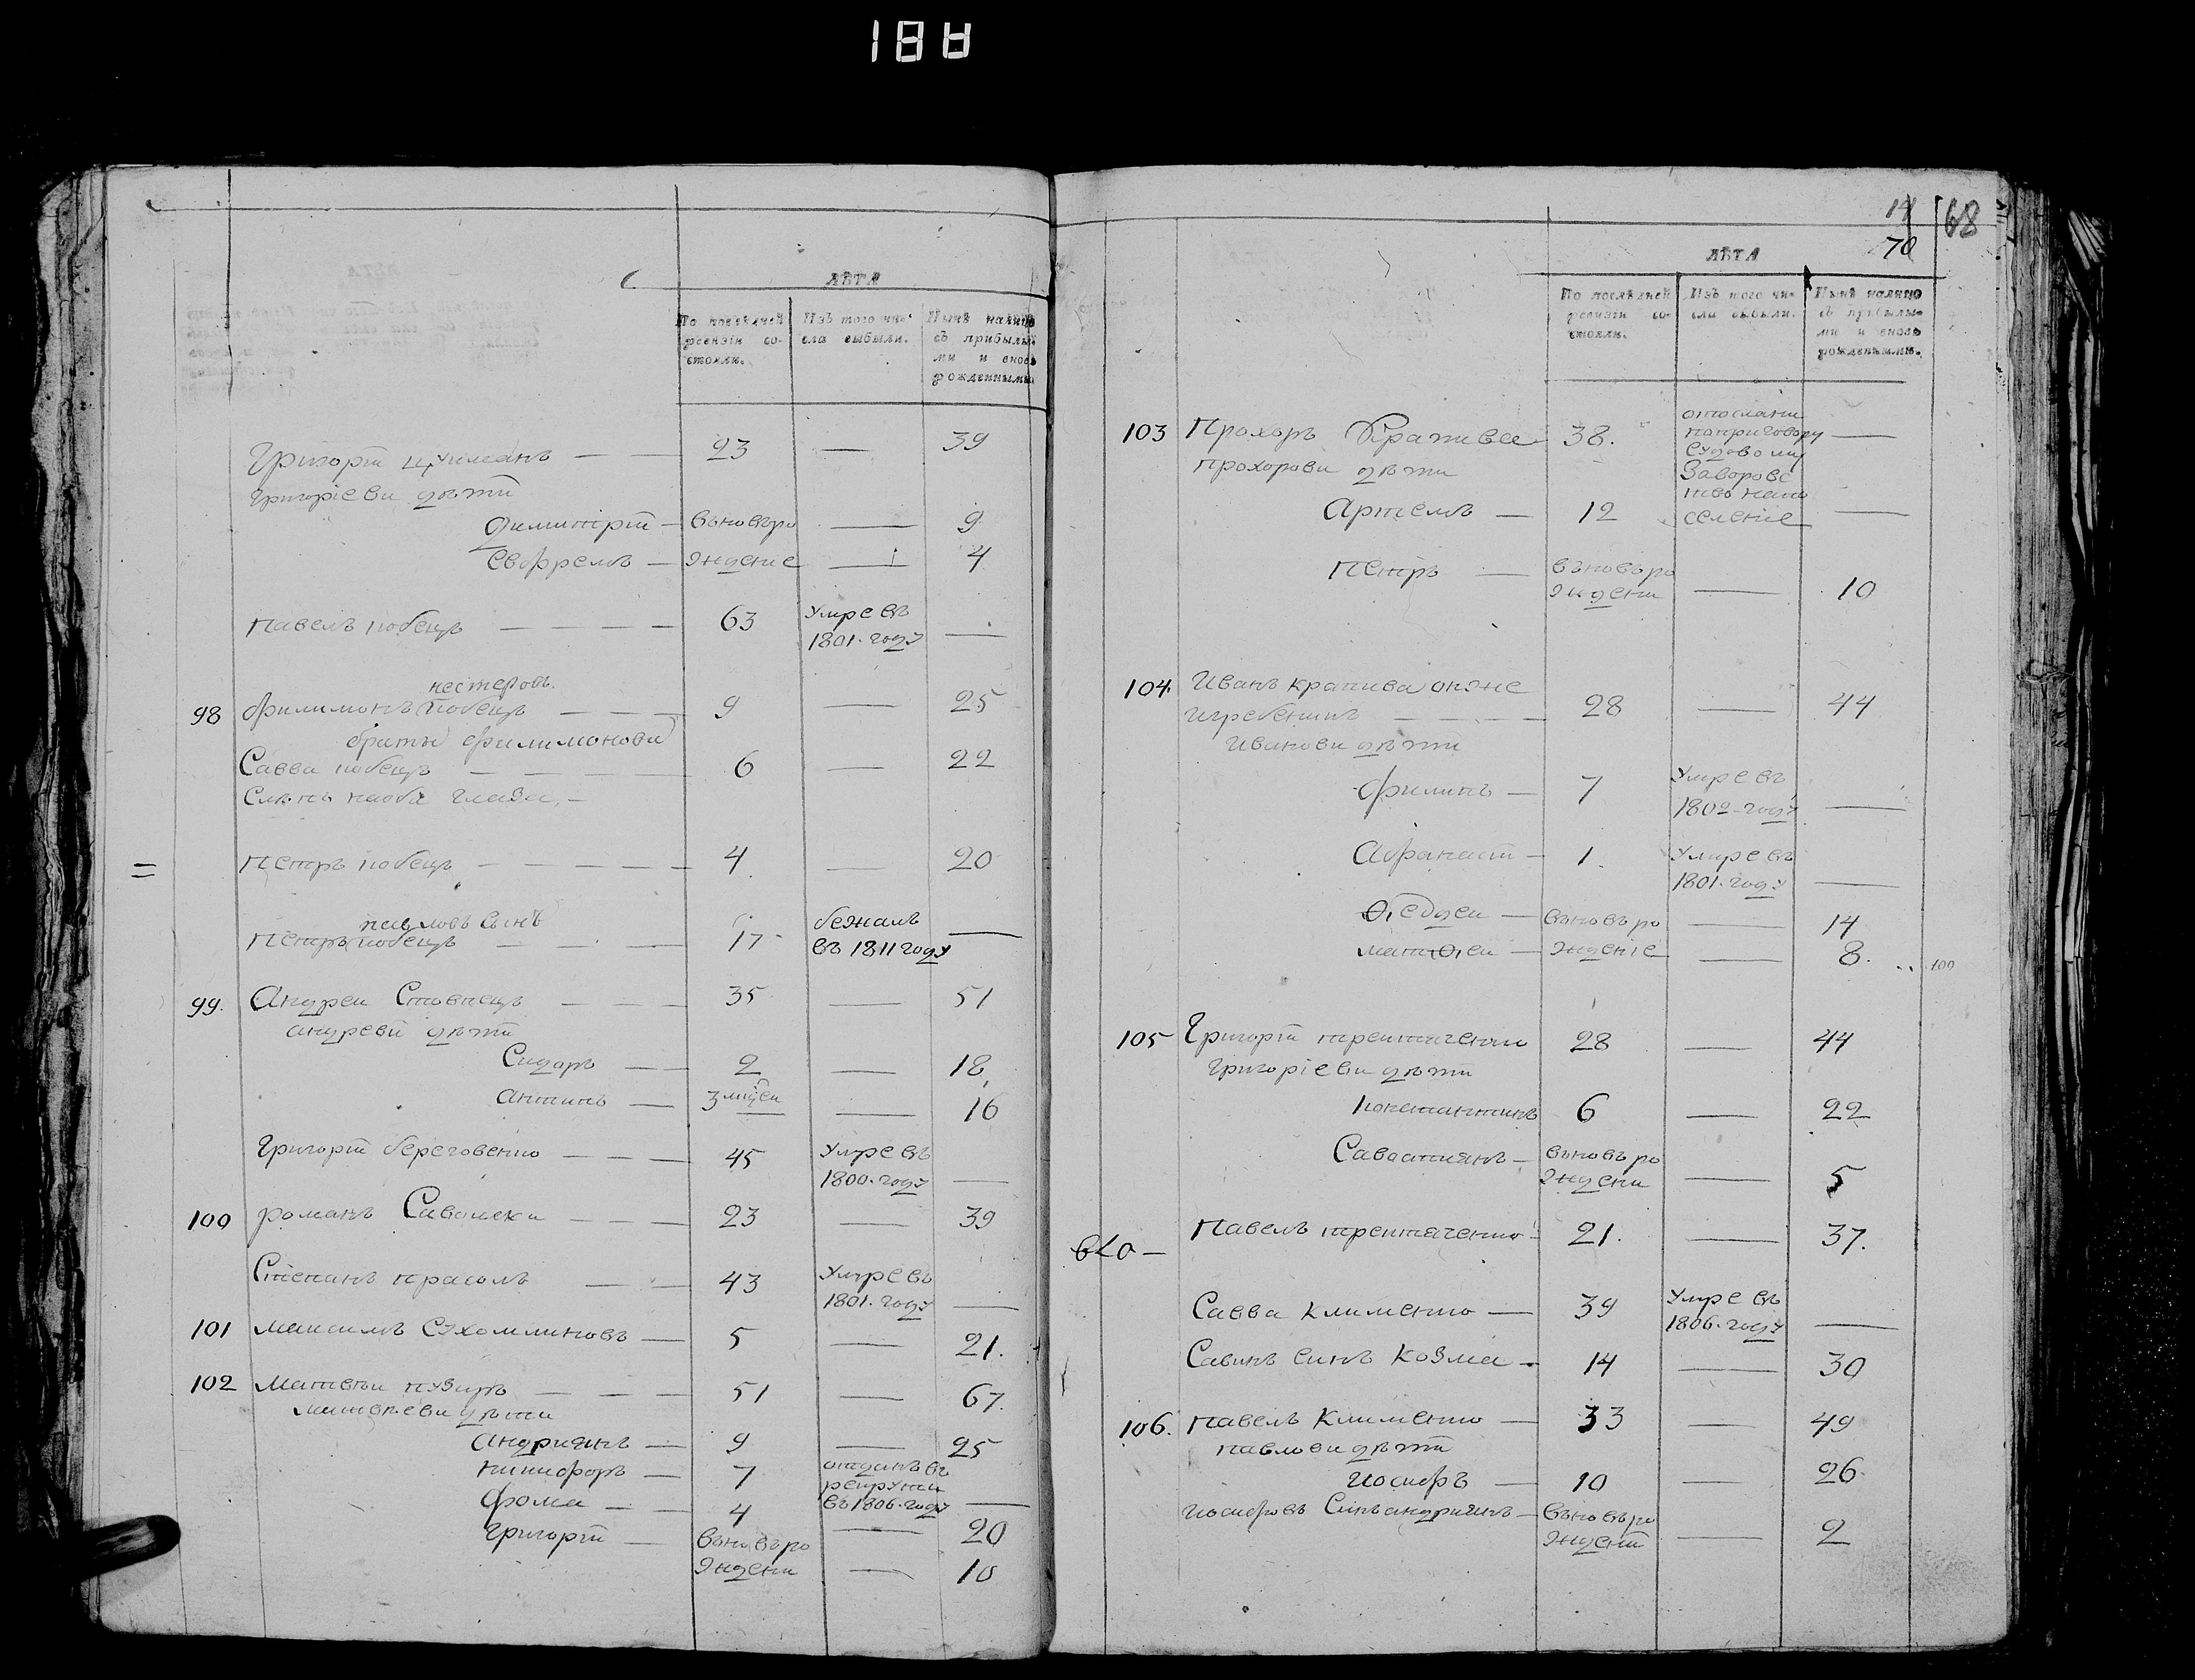 188
ЛѢТА
По послѣдней ревизіи состояли.
Изъ того числа выбыли.
Нынѣ налицо съ прибылыми и вновь рожденными.
Григорій Цукманъ — 23 — 39
Григоріеви дѣти
Димитрій — вьновьро — 9
Ефремъ — ждение — 4
Павелъ кобецъ — 63 Умре въ 1801. году —
98 Филимонъ нестеровъ кобецъ — 9 — 25
братья Филимонови
Савва кобецъ — 6 — 22
слѣпъ наоба глаза. —
= Петръ кобецъ — 4 — 20
Петръ павловъ синъ кобецъ — 17 бежалъ въ 1811 году —
99. Андреи Стовпецъ — 35 — 51
андреви дѣти
Сидоръ — 2 — 18
антипъ — 3 мцеи — 16
Григорій береговенко — 45 Умре въ 1800. году —
100 романъ — 23 — 39
Степанъ прасолъ — 43 Умре въ 1801. году —
101 Максимъ Сухомлиновъ — 5 — 21.
102 Матвѣи пузиръ — 51 — 67.
матвѣеви дѣти
андриянъ — 9 — 25
никифоръ — 7 отданъ въ рекрути въ 1806. году —
фома — 4 — 20
Григорій — вьновьро ждени — 10
14 68
70
ЛѢТА
По послѣдней ревизіи состояли.
Изъ того числа выбыли.
Нынѣ налицо съ прибылыми и вновь рожденными.
103 Прохоръ Крапива 38. отослани поприговору —
прохорови дѣти судовому
Заворовс
Артемъ — 12 тво напо селение —
Петръ — вьновьро ждени — 10
104. Иванъ крапива онже
игребеникъ — 28 — 44
Иванови дѣти
Филипъ — 7 Умре въ 1802 году —
Афанасій — 1. Умре въ 1801. году —
Ѳедеи — вьновьро — 14
матѳеи — ждение — 8. 100
105 Григорій третяченко 28 — 44
Григоріеви дѣти
константинъ 6 — 22
Савостиянъ — вьновьро ждени — 5
Павелъ третяченко — 21. — 37.
Савва клименко — 39 Умре въ 1806. году —
Савинъ синъ козма — 14 — 30
106. павелъ клименко — 33 — 49
павлови дѣти
иосифъ — 10 — 26
иосифовъ синъ андриянъ — вьновьро ждени — 2